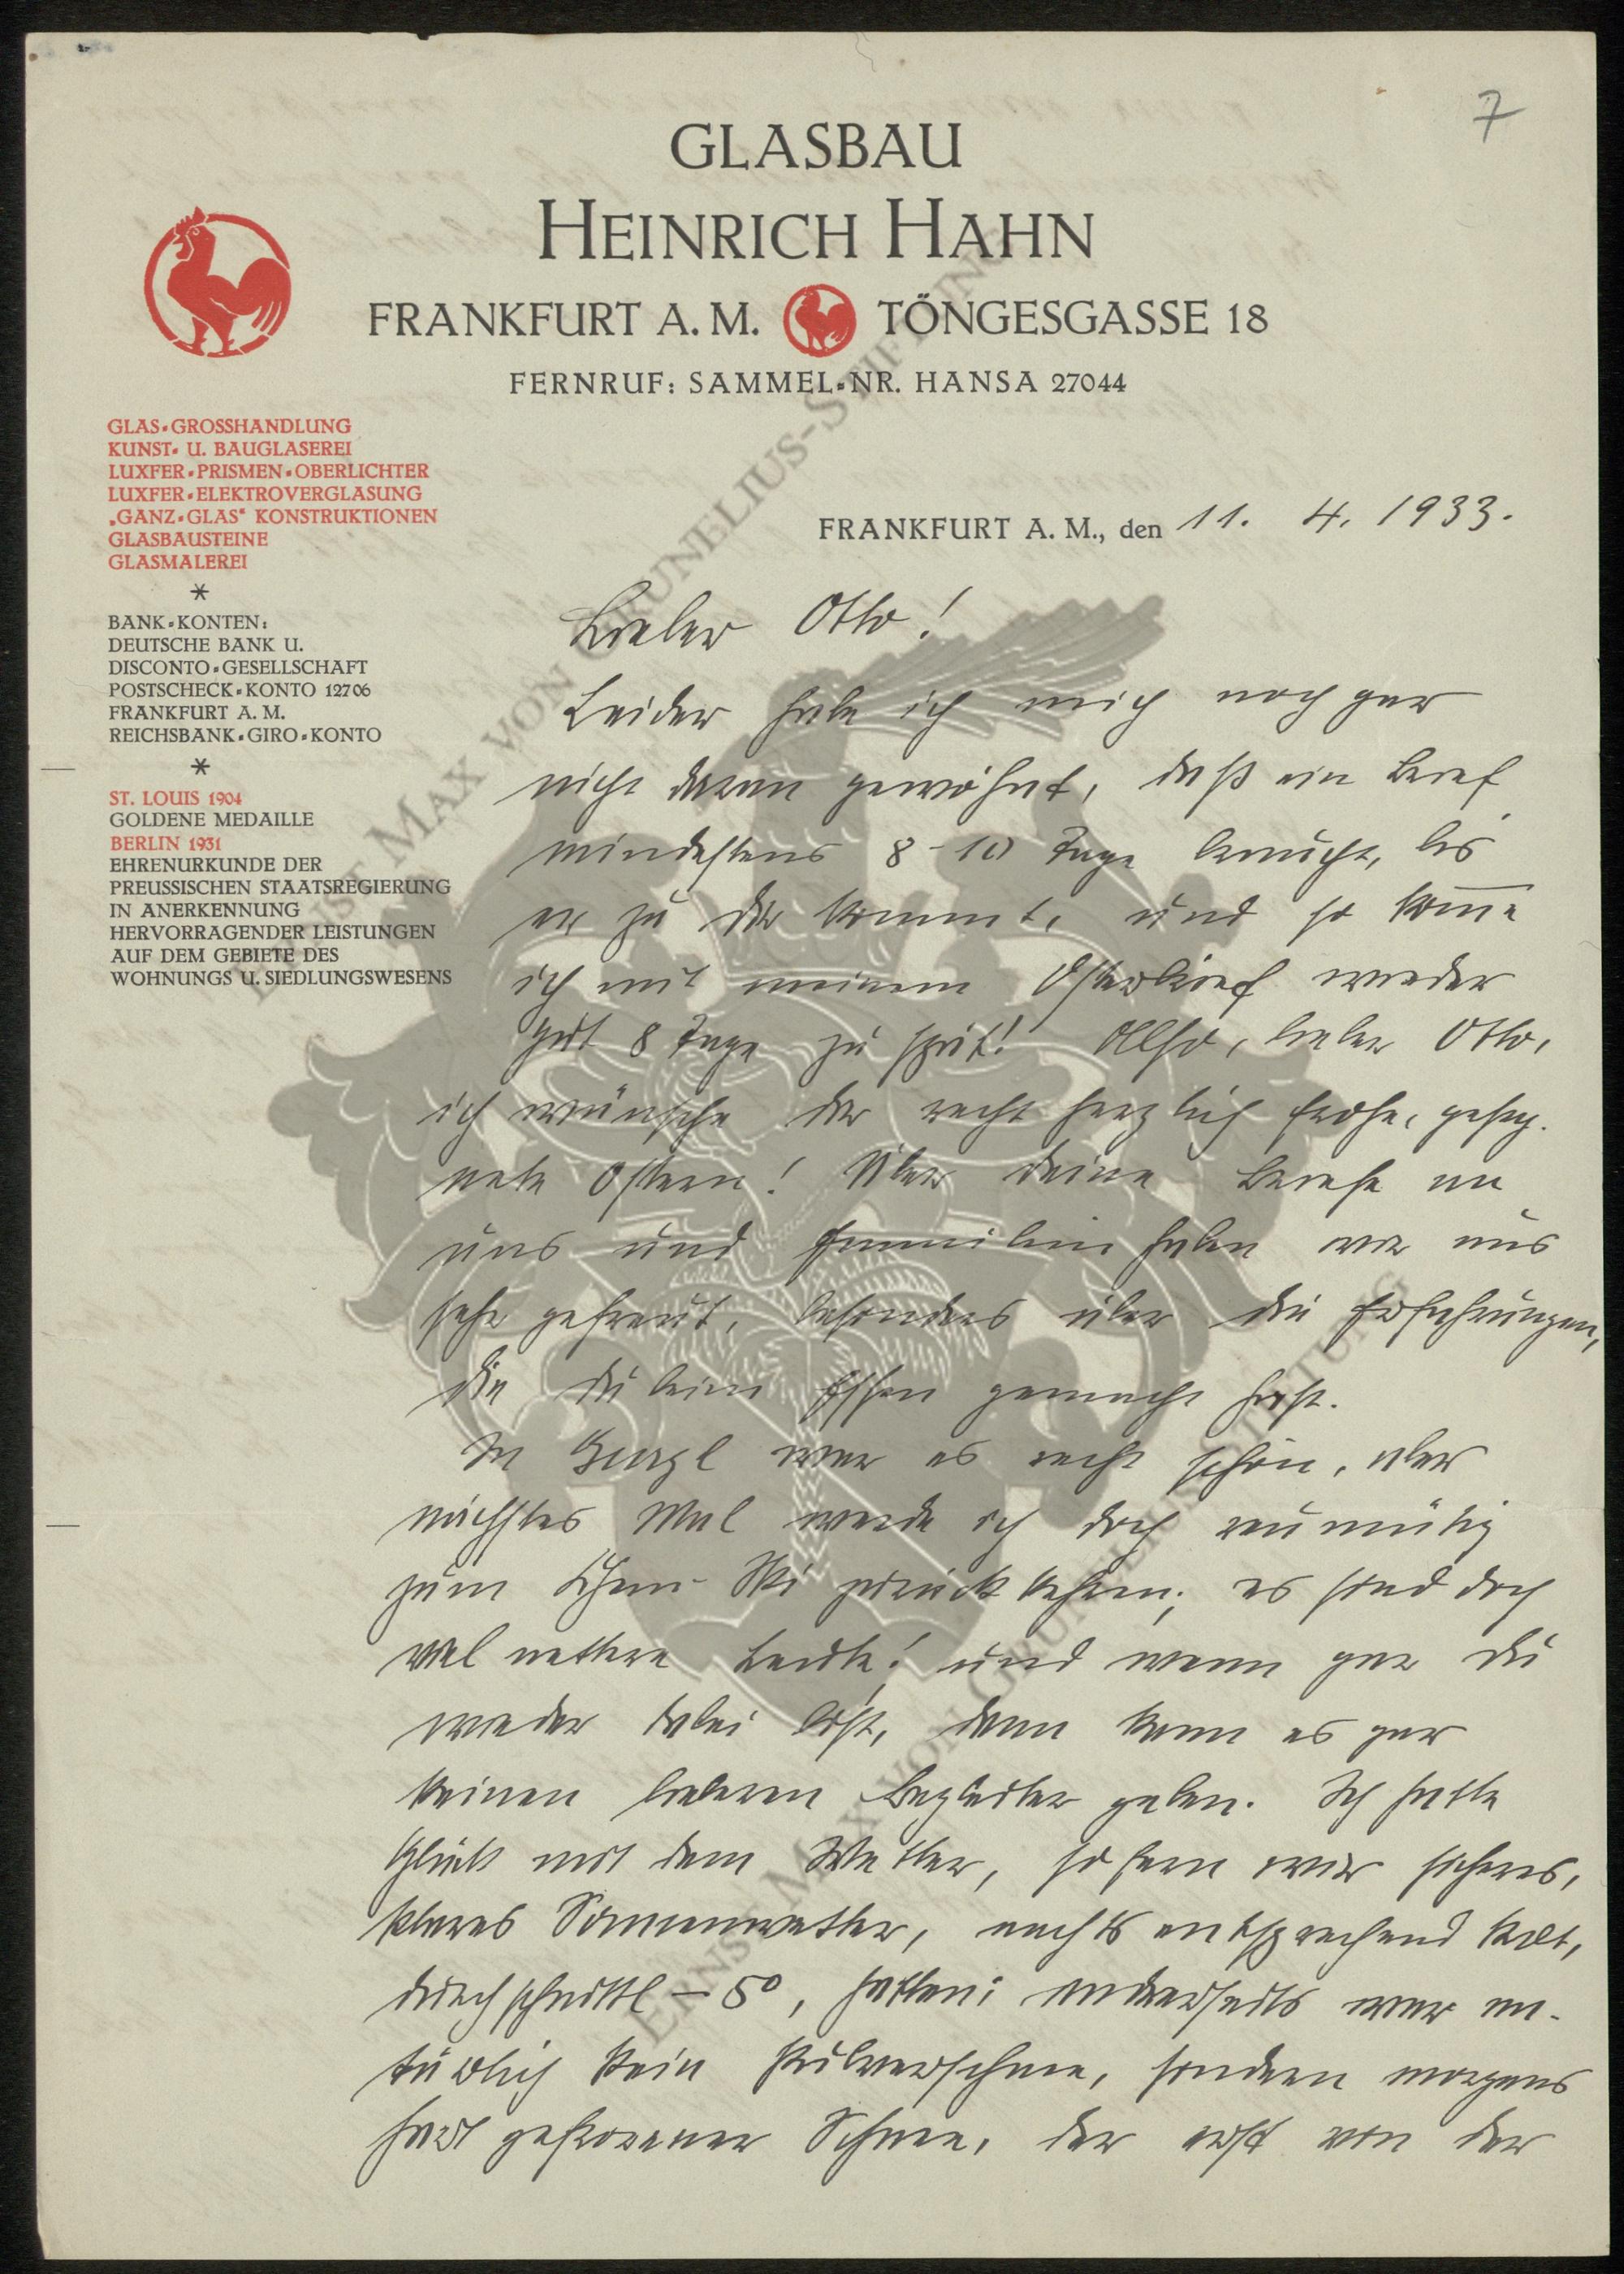 7
GLASBAU
HEINRICH HAHN
FRANKFURT A. M. TÖNGESGASSE 18
FERNRUF: SAMMEL-NR. HANSA 27044
GLAS-GROSSHANDLUNG
KUNST- U. BAUGLASEREI
LUXFER-PRISMEN-OBERLICHTER
LUXFER-ELEKTROVERGLASUNG
„GANZ-GLAS“ KONSTRUKTIONEN
GLASBAUSTEINE
GLASMALEREI
*
BANK-KONTEN:
DEUTSCHE BANK U.
DISCONTO-GESELLSCHAFT
POSTSCHECK-KONTO 12706
FRANKFURT A. M.
REICHSBANK-GIRO-KONTO
*
ST. LOUIS 1904
GOLDENE MEDAILLE
BERLIN 1931
EHRENURKUNDE DER
PREUSSISCHEN STAATSREGIERUNG
IN ANERKENNUNG
HERVORRAGENDER LEISTUNGEN
AUF DEM GEBIETE DES
WOHNUNGS U. SIEDLUNGSWESENS
FRANKFURT A. M., den 11. 4. 1933.
Lieber Otto!
Leider habe ich mich noch gar
nicht daran gewöhnt, daß ein Brief
mindestens 8-10 Tage braucht, bis
er zu dir kommt, und so kom̅e
ich mit meinem Osterbrief wieder
gut 8 Tage zu spät! Also, lieber Otto,
ich wünsche dir recht herzlich frohe, geseg-
nete Ostern! Über deine Briefe an
uns und haben wir uns
sehr gefreut, besonders über die Erfahrungen,
die du beim Essen gemacht hast.
In Gurgl war es recht schön, aber
nächstes Mal werde ich doch reumütig
zum Ski zurückkehren; es sind doch
viel nettere Leute! und wenn gar du
wieder dabei bist, dann kann es gar
keinen lieberen Begleiter geben. Ich hatte
Glück mit dem Wetter, sofern wir sicheres,
klares Sonnenwetter, nachts entsprechend kalt,
durchschnittl -5°, hatten; anderseits war na-
türlich kein Pulverschnee, sondern morgens
hart gefrorener Schnee, der erst von der
ERNST MAX VON GRUNELIUS-STIFTUNG
ERNST MAX VON GRUNELIUS-STIFTUNG